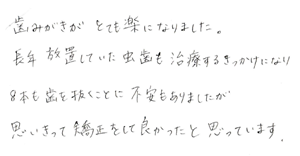 歯みがきが とても楽になりました。
長年 放置していた虫歯も 治療するきっかけになり
8本も歯を抜くことに 不安もありましたが
思いきって 矯正をして良かったと 思っています.